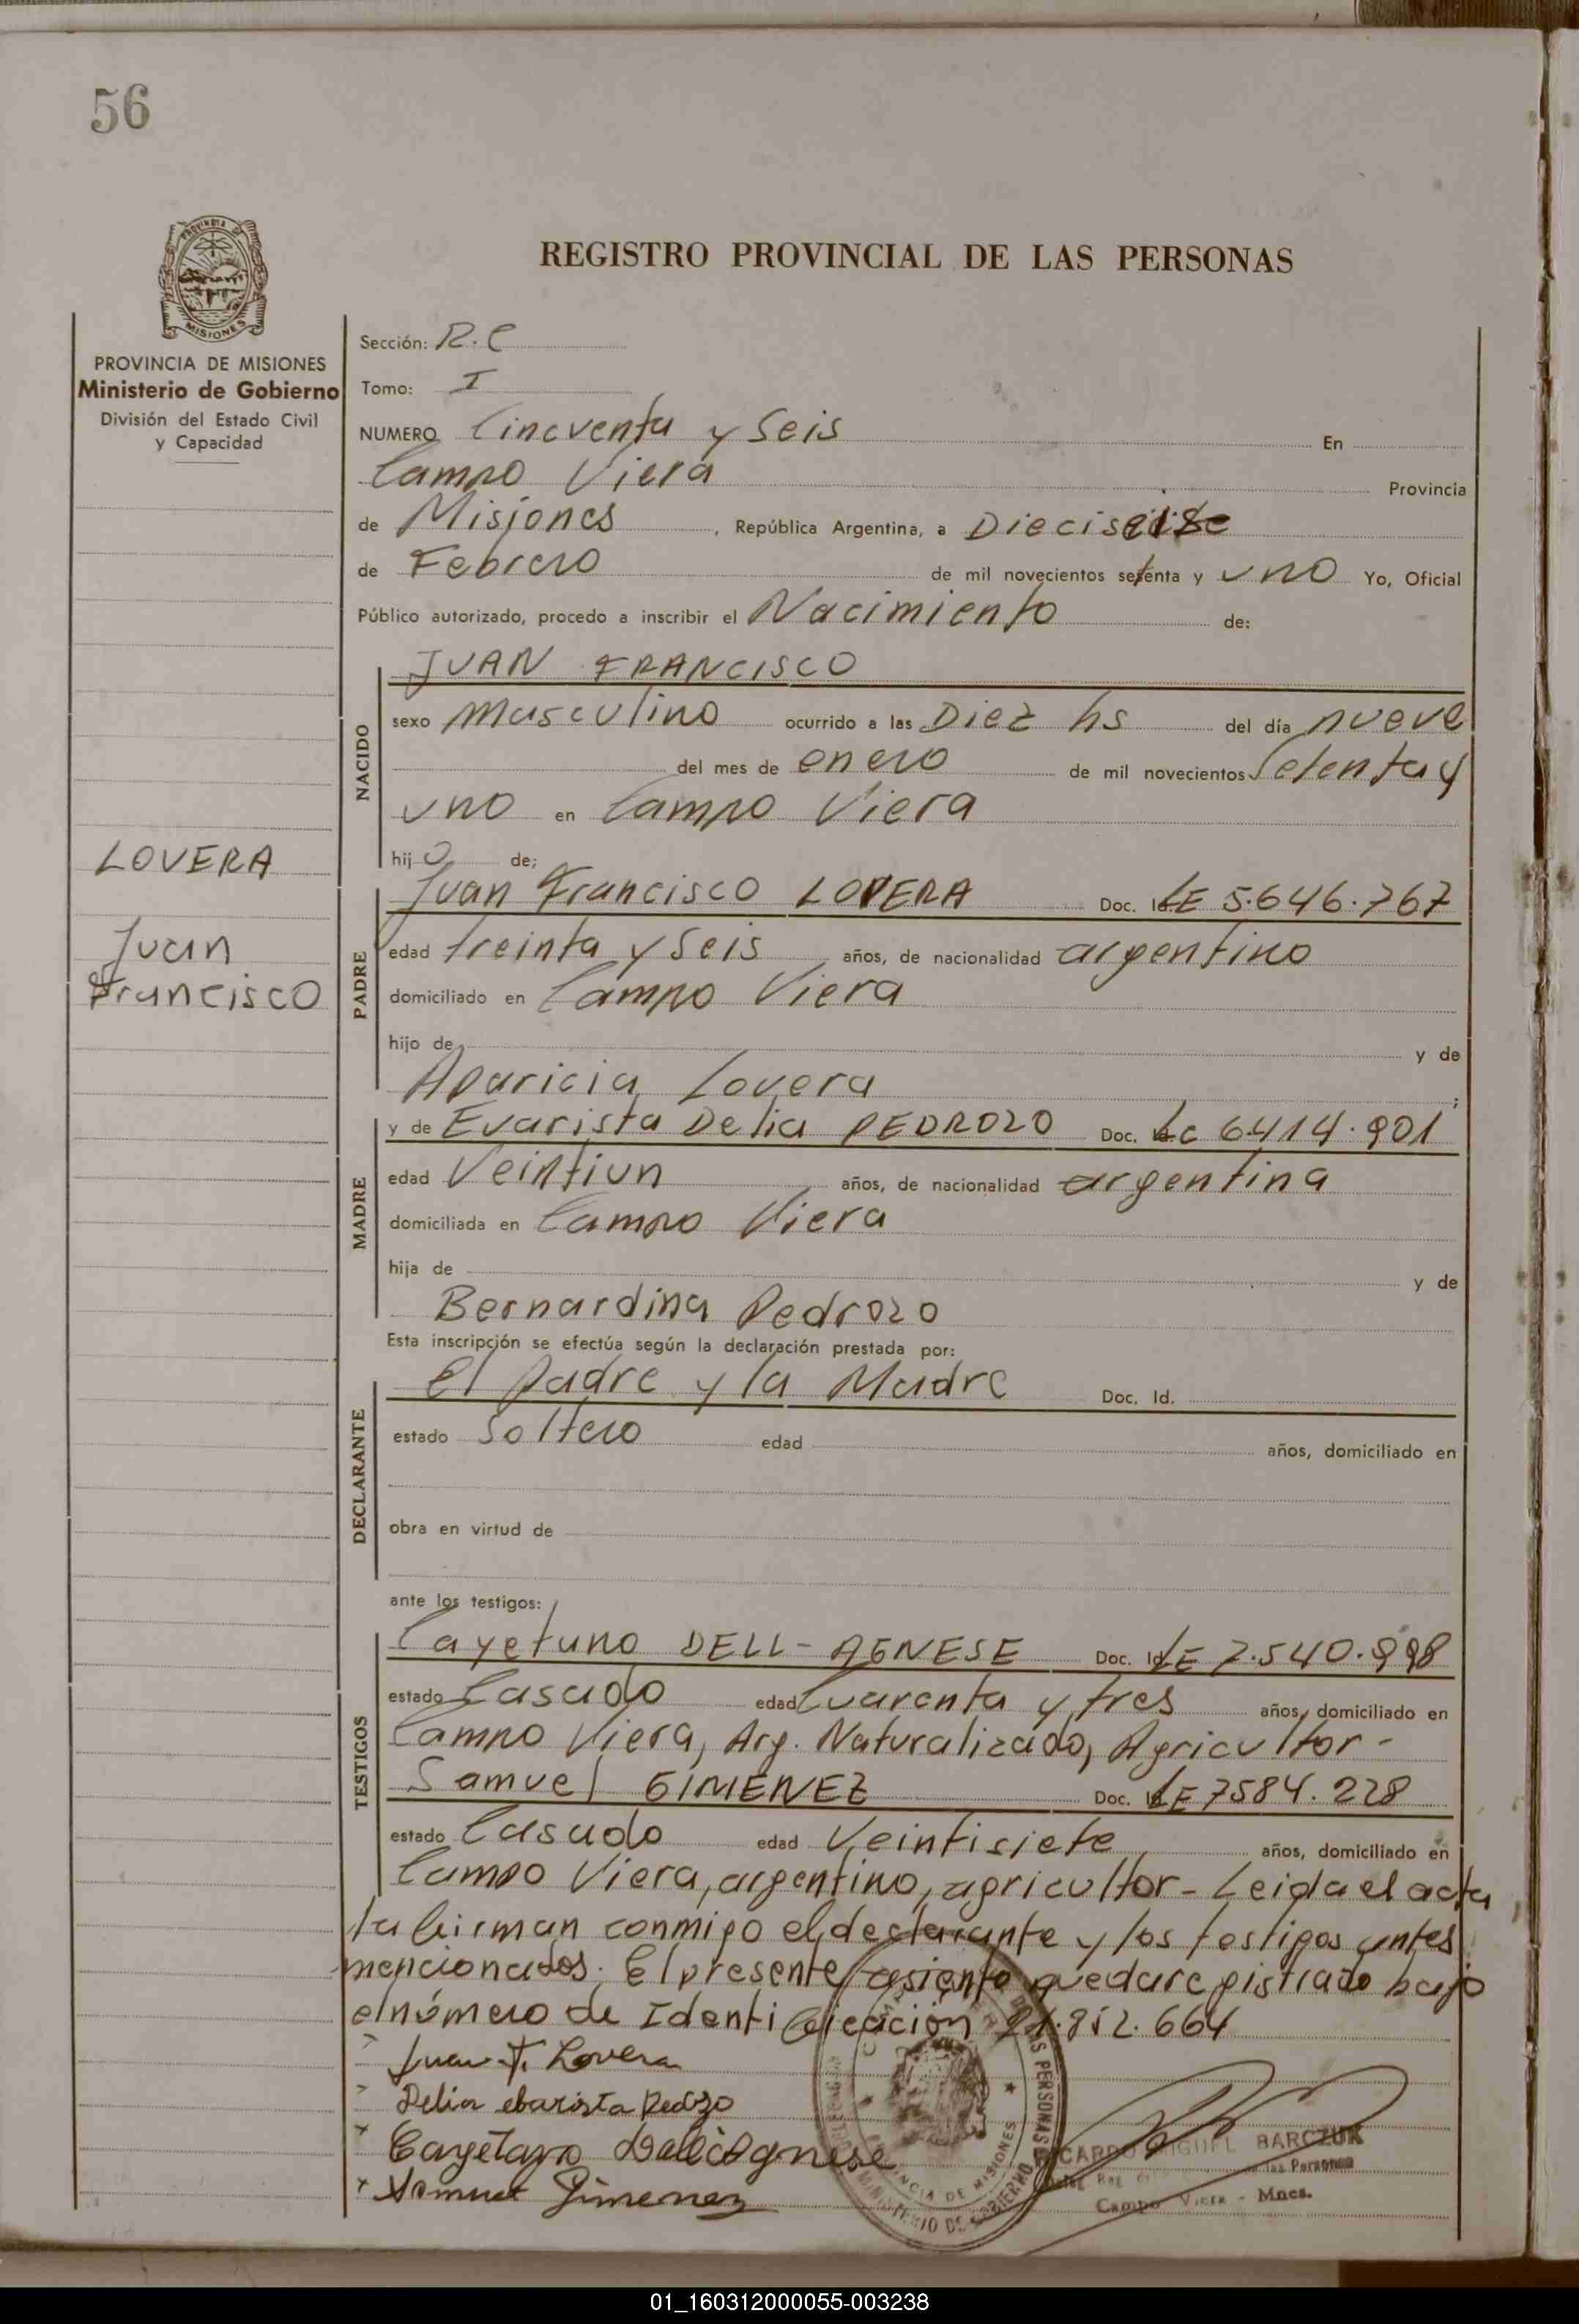 56
PROVINCIA DE MISIONES
Ministerio de Gobierno
División del Estado Civil
y Capacidad
LOVERA
Juan
Francisco
REGISTRO PROVINCIAL DE LAS PERSONAS
Sección: R.C
Tomo: I
NUMERO Cincuenta y Seis En
Campo Viera Provincia
de Misiones, República Argentina, a
de Febrero de mil novecientos setenta y uno Yo, Oficial
Público autorizado, procedo a inscribir el Nacimiento de:
NACIDO
JUAN FRANCISCO
sexo Masculino ocurrido a las Diez hs del día nueve
del mes de enero de mil novecientos Setenta y
uno en Campo Viera
hijo de;
PADRE
Juan Francisco LOVERA Doc. Id. LE 5.646.767
edad treinta y Seis años, de nacionalidad argentino
domiciliado en Campo Viera
hijo de y de
Aparicia Lovera;
MADRE
y de Evarista Delia PEDROZO Doc. Id. LC 6.414.901
edad Veintiun años, de nacionalidad argentina
domiciliada en Campo Viera
hija de y de
Bernardina Pedrozo
Esta inscripción se efectúa según la declaración prestada por:
DECLARANTE
El padre y la Madre Doc. Id.
estado Soltero edad años, domiciliado en
obra en virtud de
ante los testigos:
TESTIGOS
Cayetano DELL-AGNESE Doc. Id. LE 7.540.998
estado Casado edad Cuarenta y tres años, domiciliado en
Campo Viera, Arg. Naturalizado, Agricultor-
Samuel GIMENEZ Doc. Id. LE 7584.228
estado Casado edad Veintisiete años, domiciliado en
Campo Viera, argentino, agricultor- Leida el acta
la firman conmigo el declarante y los testigos antes
mencionados. El presente asiento queda registrado bajo
el número de Identificación 21.812.664
Juan F. Lovera
Delia ebarista Pedrozo
Cayetano Dell'Agnese
Samuel Gimenez
RICARDO MIGUEL BARCZUK
de las Personas
Campo Viera - Mnes.
01_160312000055-003238